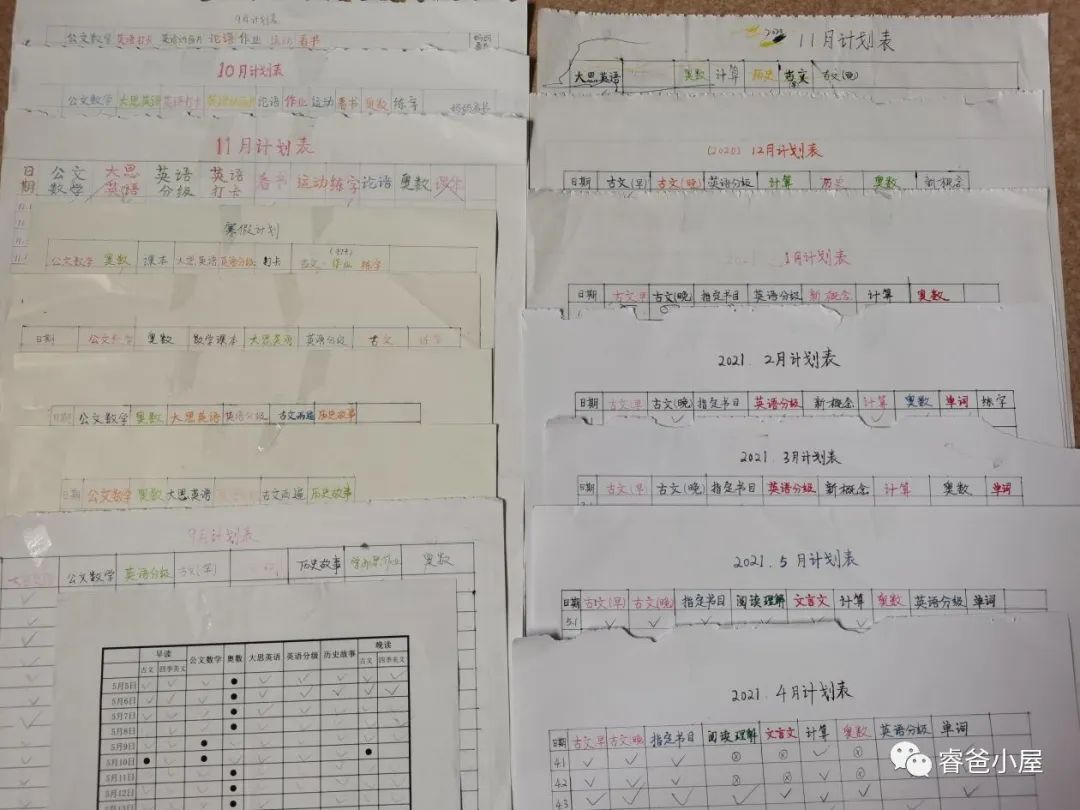 9月计划表
公文数学 英语打卡 英语动画片 论语 作业 运动 看书
10月计划表
公文数学 大思英语 英语打卡 论语 作业 运动 看书 奥数 练字
11月计划表
日期 公文数学 大思英语 英语分级 英语打卡 看书 运动 练字 论语 奥数 课本
寒假计划
公文数学 奥数 课本 大思英语 英语分级 打卡 古文 作业 练字
日期 公文数学 奥数 数学课本 大思英语 英语分级 古文
日期 公文数学 奥数 大思英语 英语分级 古文两遍 历史故事
日期 公文数学 奥数 大思英语 古文两遍 历史故事
9月计划表
公文数学 英语分级 古文(早) 历史故事 奥数
早读 公文数学 奥数 大思英语 英语分级 历史故事 晚读
古文 四季美文 古文 四季美文
5月5日
5月6日
5月7日
5月8日
5月9日
5月10日
5月11日
5月12日
2020 11月计划表
大思英语 奥数 计算 历史 古文(晚)
(2020) 12月计划表
日期 古文(早) 古文(晚) 英语分级 计算 历史 奥数 新概念
2021 1月计划表
日期 古文早 古文(晚) 指定书目 英语分级 新概念 计算 奥数
2021. 2月计划表
日期 古文早 古文(晚) 指定书目 英语分级 新概念 计算 奥数 单词 练字
2021. 3月计划表
日期 古文(早) 古文(晚) 指定书目 英语分级 新概念 计算 奥数 单词
2021. 5月计划表
日期 古文(早) 古文(晚) 指定书目 阅读理解 文言文 计算 奥数 英语分级 单词
5.1
2021. 4月计划表
日期 古文早 古文晚 指定书目 阅读理解 文言文 计算 奥数 英语分级 单词
4.1
4.2
4.3
睿爸小屋